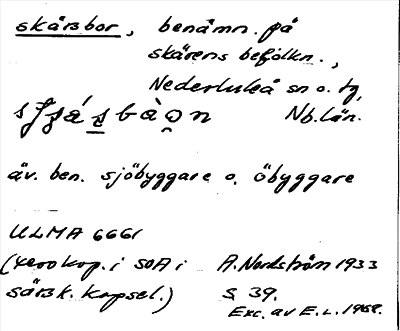 skärsbor, benämn. på
skärens befolkn.,
Nederluleå sn o. tg,
Nb. län.
äv. ben. sjöbyggare o. öbyggare
ULMA 6661
(xerokop. i SOA i A. Nordström 1933
särsk. kapsel.) S 39.
Exc. av E.L. 1968.